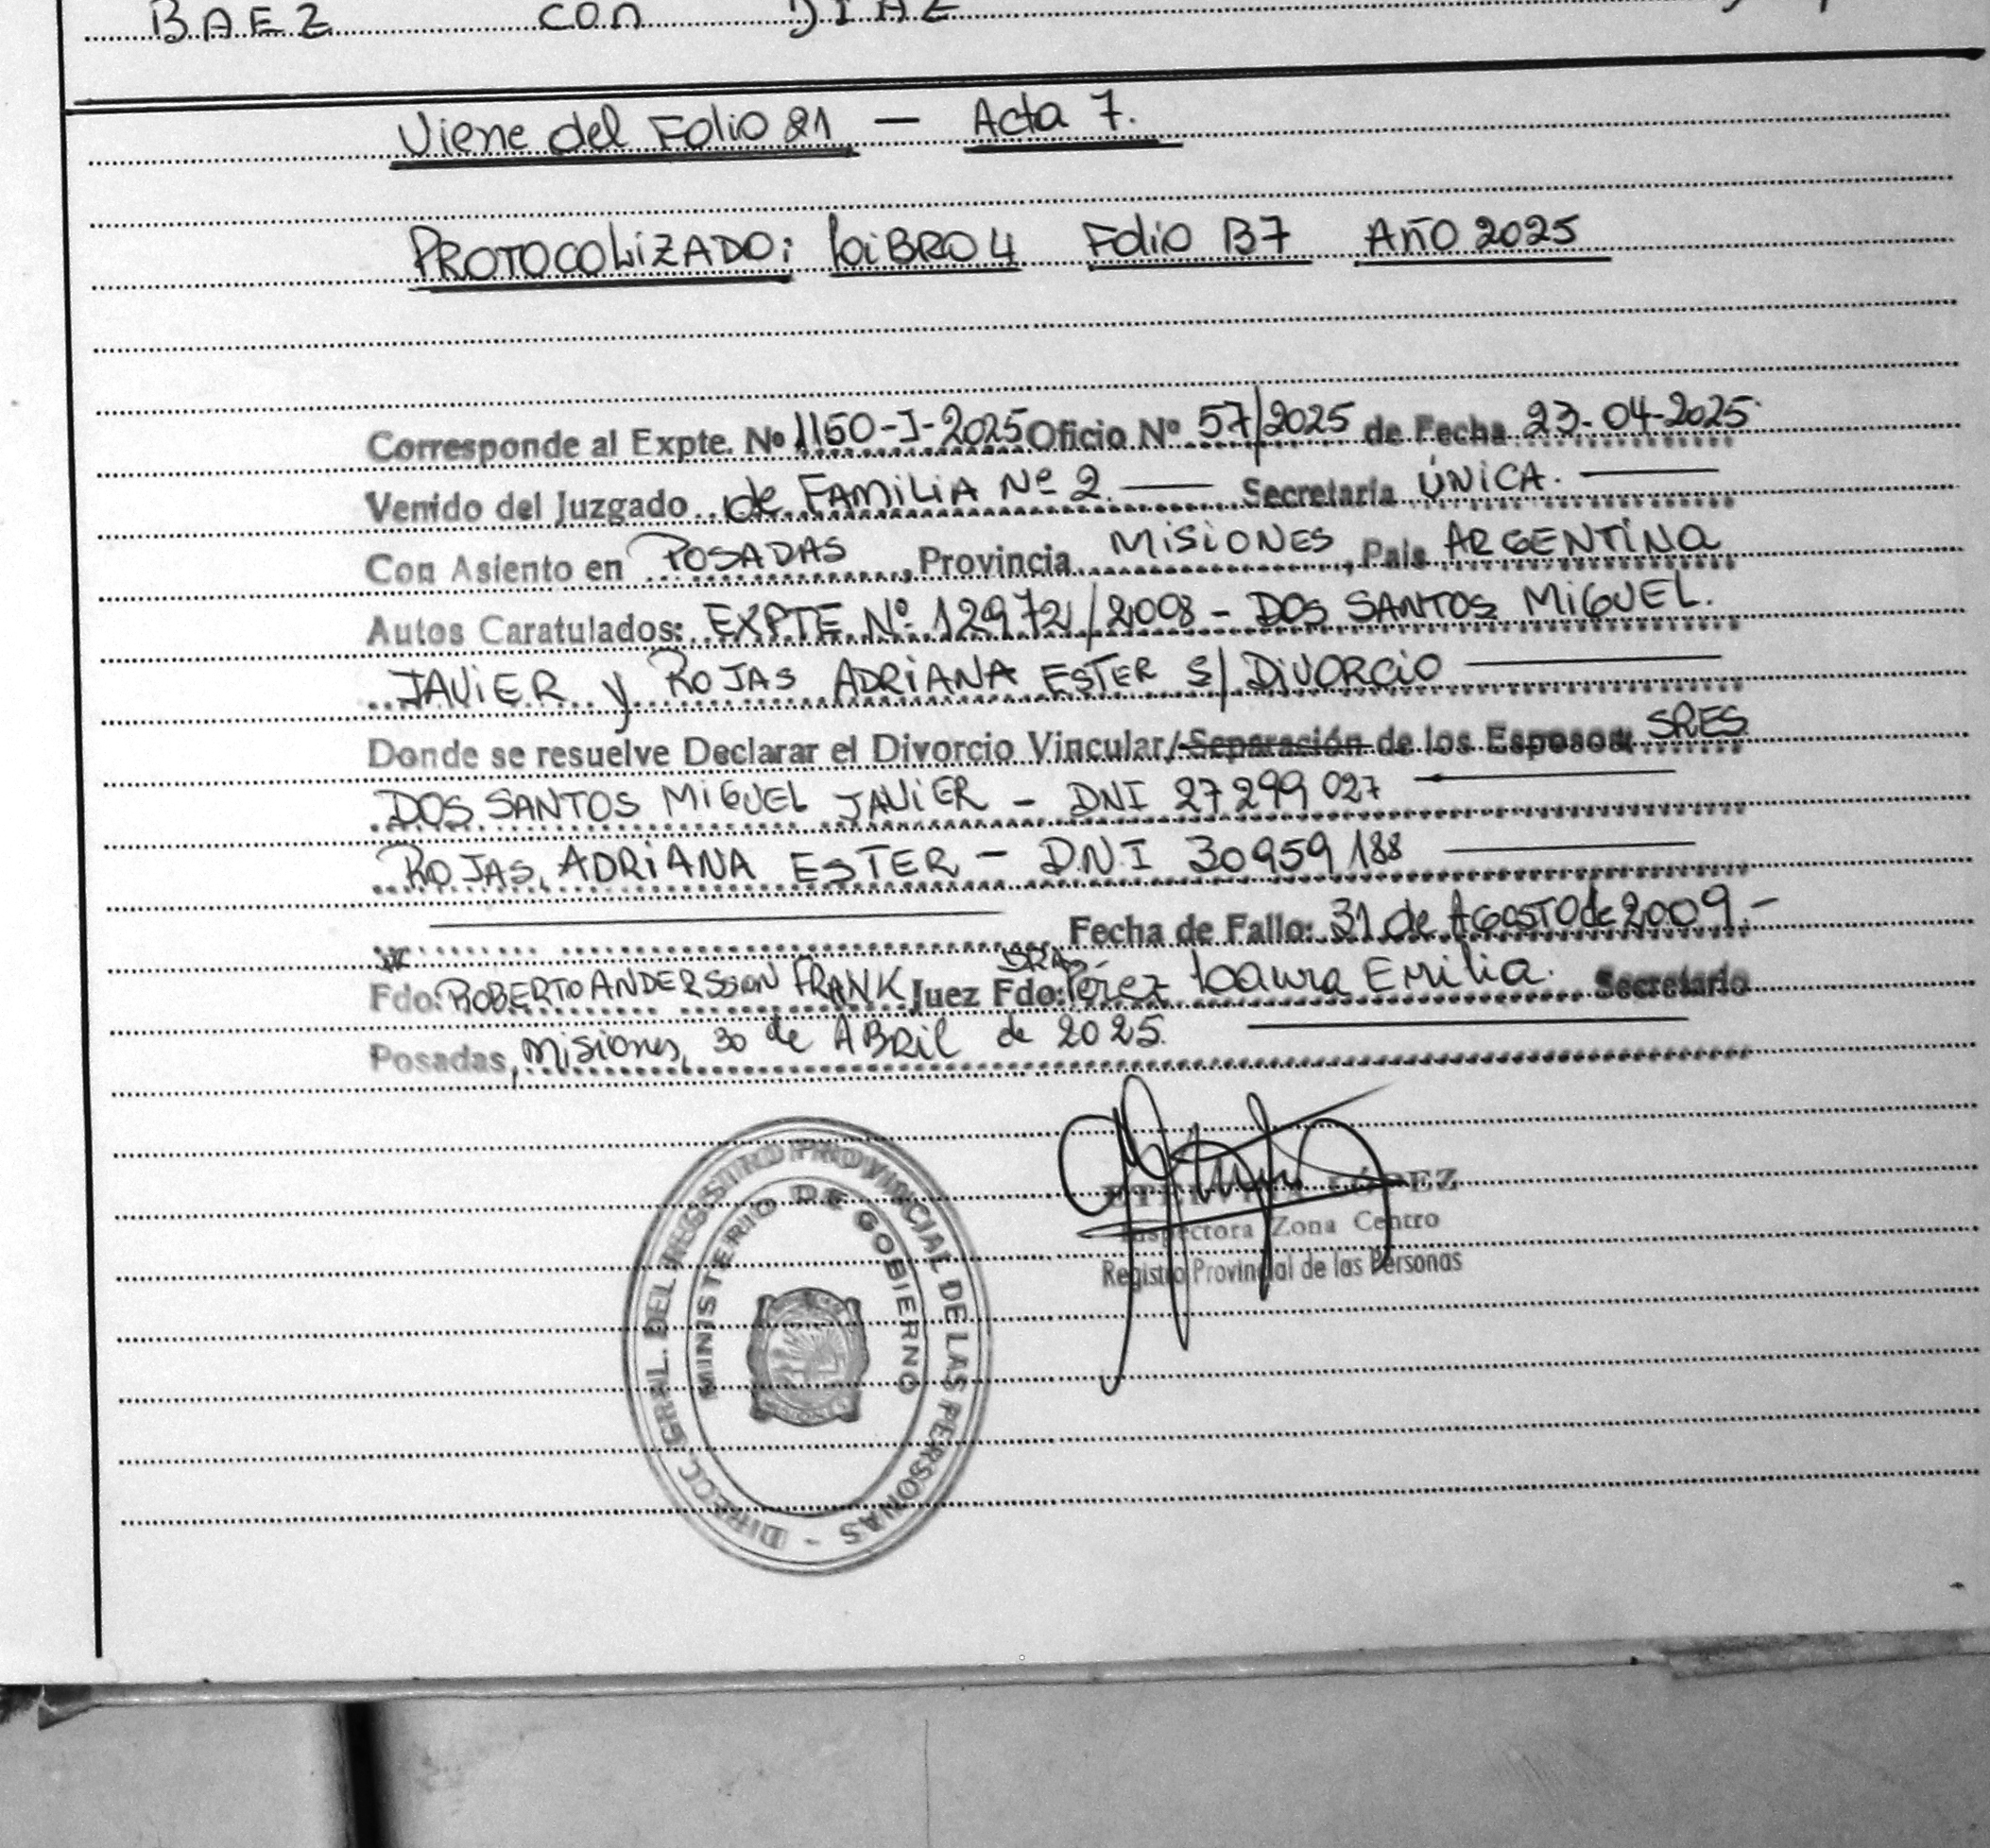 BAEZ con DIAZ
Viene del Folio 21 — Acta 7.
PROTOCOLIZADO: LiBRO 4 Folio B7 AÑO 2025
Corresponde al Expte. Nº 1160-J-2025 Oficio Nº 57/2025 de Fecha 23-04-2025
Venido del Juzgado de FAMiLiA Nº 2. — Secretaría ÚNiCA. —
Con Asiento en POSADAS, Provincia MiSiONES, País ARGENTiNA
Autos Caratulados: EXPTE Nº 12972/2008 - DOS SANTOS MiGUEL.
JAViER y ROJAS ADRiANA ESTER S/ DiVORCiO —
Donde se resuelve Declarar el Divorcio Vincular/Separación de los Esposos: SRES
DOS SANTOS MiGUEL JAViER - DNI 27299027 —
ROJAS, ADRiANA ESTER - DNI 30959188 —
— Fecha de Fallo: 31 de AGOSTO de 2009.-
Fdo: ROBERTO ANDERSSON FRANK Juez Fdo: DRA. Pérez Laura Emilia. Secretario
Posadas, Misiones, 30 de ABRil de 2025. —
LÓPEZ
Inspectora Zona Centro
Registro Provincial de las Personas
DIRECC. GRAL. DEL REGISTRO PROVINCIAL DE LAS PERSONAS -
MINISTERIO DE GOBIERNO